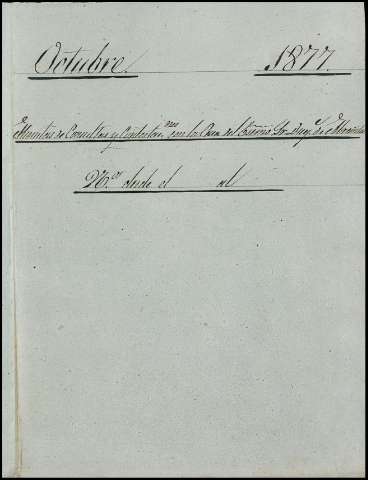 Octubre. 1877.
Minutas de Consultas y Contestac.nes con la Casa del Excmo Sr. Duq.e de
N.os desde el al